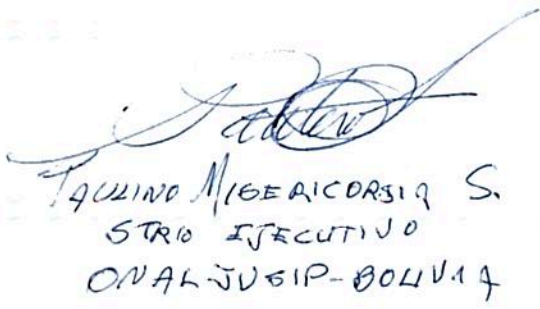 PAULINO MISERICORDIA S.
STRIO EJECUTIVO
ONAL-JUSIP-BOLIVIA